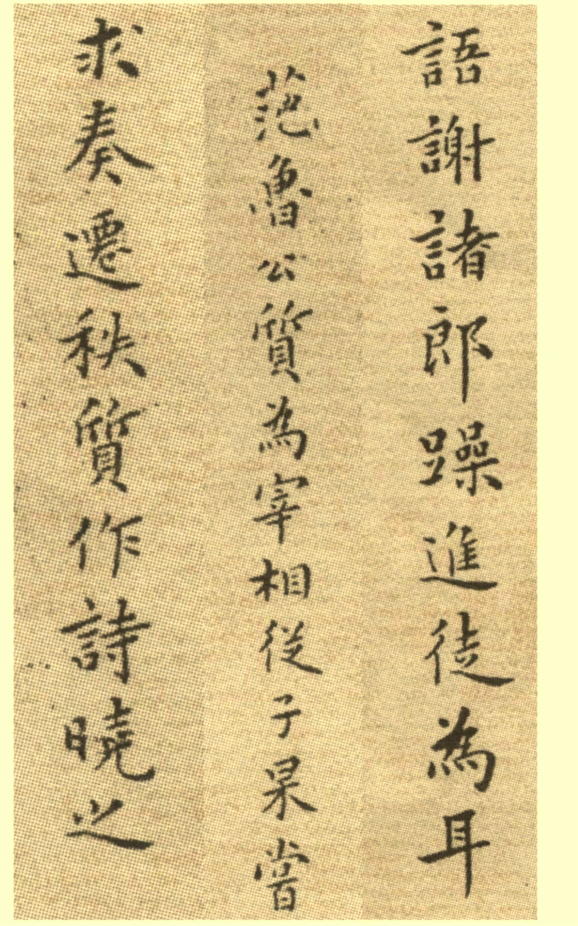 語謝諸郎躁進徒為耳
范魯公質為宰相従子杲嘗
求奏遷秩質作詩曉之